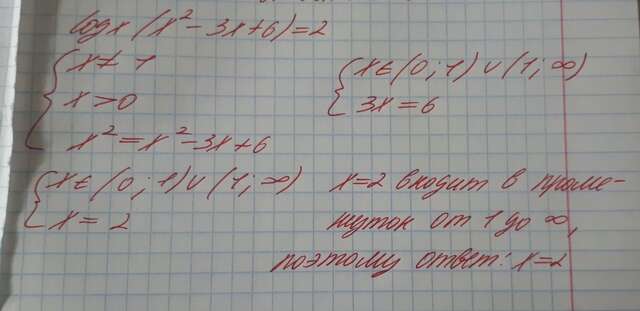 logx (x² - 3x + 6) = 2
x ≠ 1
x > 0
x² = x² - 3x + 6
x ∈ (0 ; 1) ∪ (1 ; ∞)
3x = 6
x ∈ (0 ; 1) ∪ (1 ; ∞)
x = 2
x=2 входит в проме-
жуток от 1 до ∞,
поэтому ответ: x=2